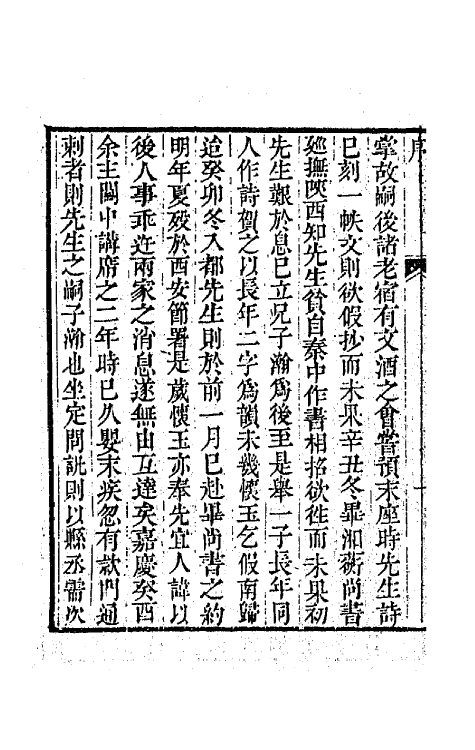 序
掌故嗣後諸老宿有文酒之會嘗預末座時先生詩
已刻一帙文則欲假抄而未果辛丑冬畢湘蘅尚書
廵撫陝西知先生貧自秦中作書相招欲徃而未果初
先生艱於息已立兄子瀚爲後至是舉一子長年同
人作詩賀之以長年二字爲韻未幾懷玉乞假南歸
迨癸卯冬入都先生則於前一月已赴畢尚書之約
明年夏殁於西安節署是歲懷玉亦奉先宜人諱以
後人事乖迕兩家之消息遂無由互達矣嘉慶癸酉
余主關中講席之二年時已久嬰末疾忽有款門通
刺者則先生之嗣子瀚也坐定問訊則以縣丞需次